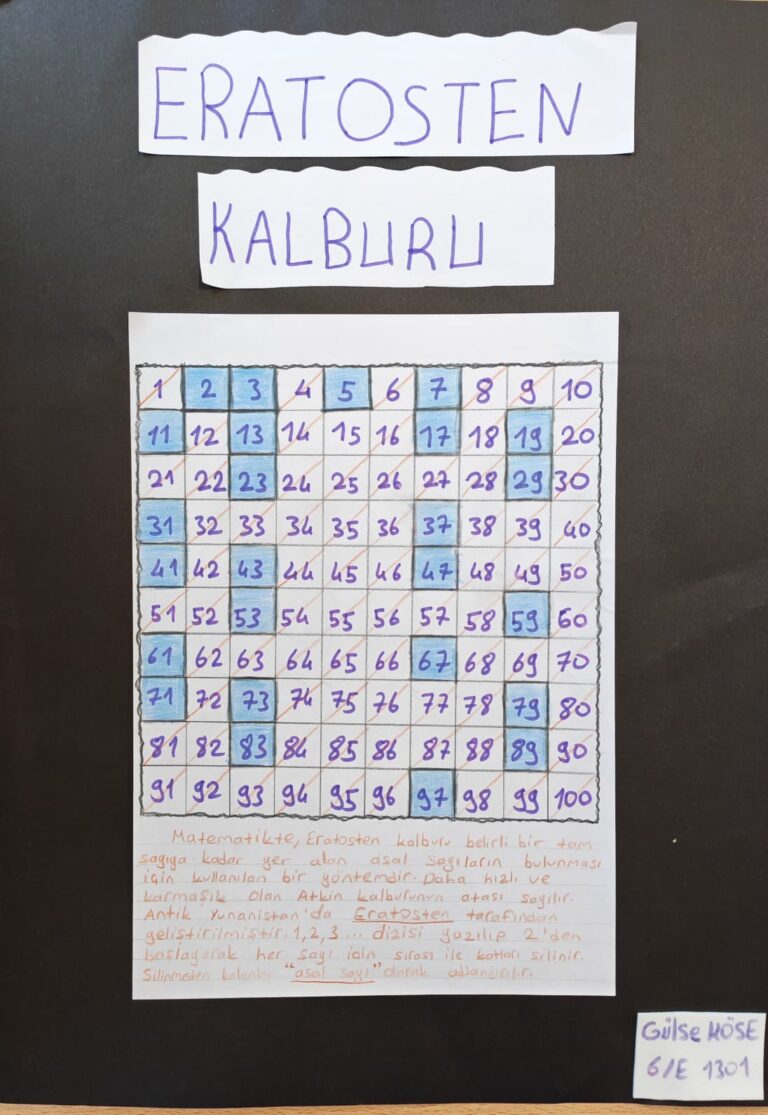 ERATOSTEN
KALBURU
1 2 3 4 5 6 7 8 9 10
11 12 13 14 15 16 17 18 19 20
21 22 23 24 25 26 27 28 29 30
31 32 33 34 35 36 37 38 39 40
41 42 43 44 45 46 47 48 49 50
51 52 53 54 55 56 57 58 59 60
61 62 63 64 65 66 67 68 69 70
71 72 73 74 75 76 77 78 79 80
81 82 83 84 85 86 87 88 89 90
91 92 93 94 95 96 97 98 99 100
Matematikte, Eratosten kalburu belirli bir tam
sayıya kadar yer alan asal sayıların bulunması
için kullanılan bir yöntemdir. Daha hızlı ve
karmaşık olan Atkin kalburunun atası sayılır.
Antik Yunanistan'da Eratosten tarafından
geliştirilmiştir. 1, 2, 3 ... dizisi yazılıp 2'den
başlayarak her sayı için sırası ile katları silinir.
Silinmeden kalanlar "asal sayı" olarak adlandırılır.
Gülse KÖSE
6/E 1301